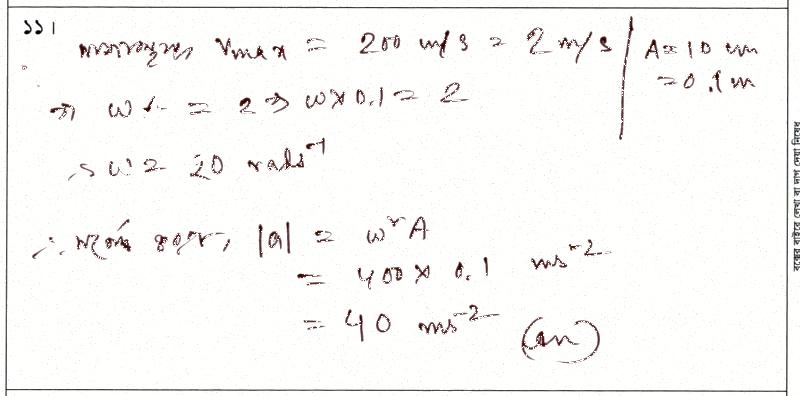 ১১।
প্রশ্নানুসারে, Vmax = 200 cm/s = 2 m/s | A = 10 cm = 0.1 m
⇒ ωA = 2 ⇒ ω×0.1 = 2
∴ ω = 20 rads⁻¹
∴ সর্বোচ্চ ত্বরণ, |a| = ω²A
= 400 × 0.1 ms⁻²
= 40 ms⁻² (an)
বক্সের বাইরে লেখা বা দাগ দেয়া নিষেধ